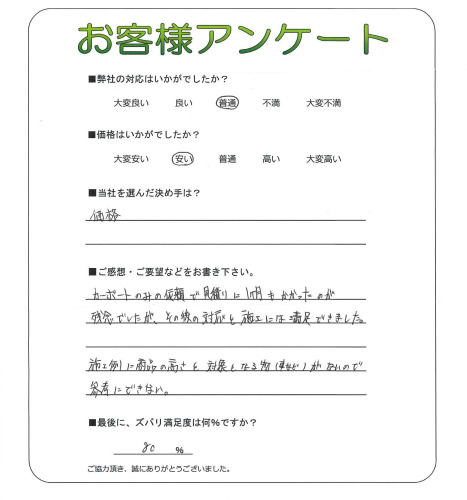 お客様アンケート
■弊社の対応はいかがでしたか？
大変良い 良い 普通 不満 大変不満
■価格はいかがでしたか？
大変安い 安い 普通 高い 大変高い
■当社を選んだ決め手は？
価格
■ご感想・ご要望などをお書き下さい。
カーポートのみの依頼で見積りに1ヶ月もかかったのが
残念でしたが、その後の対応と施工には満足できました。
施工例に商品の高さと対象となる物(車など)がないので
参考にできない。
■最後に、ズバリ満足度は何%ですか？
80 %
ご協力頂き、誠にありがとうございました。